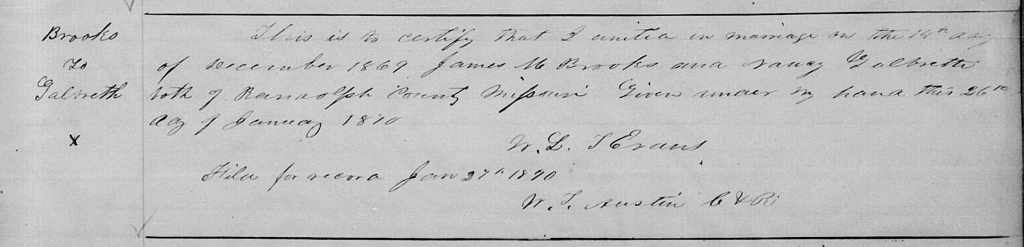 Brooks
to
Galbreth
X
This is to certify that I united in marriage on the 14th day
of December 1869 James M Brooks and Nancy Galbreth
both of Randolph County Missouri Given under my hand this 26th
day of January 1870
W. L. T Evans
Filed for record Jan 27th 1870
W. T. Austin C & R